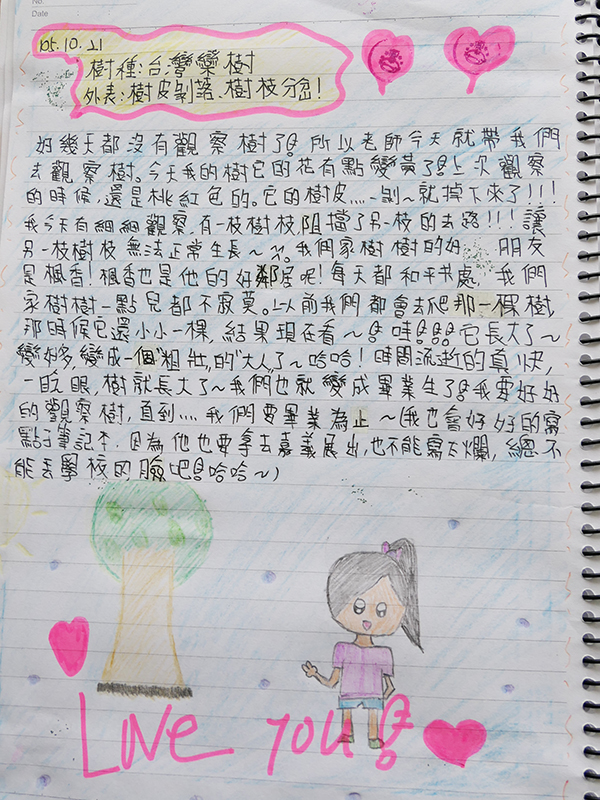 No.
Date
105.10.21
樹種:台灣欒樹
外表:樹皮剝落、樹枝分岔!
好幾天都沒有觀察樹了!所以老師今天就帶我們
去觀察樹。今天我的樹它的花有點變黃了!上次觀察
的時候,還是桃紅色的。它的樹皮....一剝~就掉下來了!!!
我今天有細細觀察,有一枝樹枝,阻擋了另一枝的去路!!!讓
另一枝樹枝無法正常生長~ 我們家樹樹的好 朋友
是楓香!楓香也是他的好鄰居呢!每天都和平共處,我們
家樹樹一點兒都不寂寞。以前我們都會去爬那一棵樹,
那時候它還小小一棵,結果現在看~!哇!!!它長大了~
變好多,變成一個"粗壯"的"大人"了~哈哈!時間流逝的真快,
一眨眼,樹就長大了~我們也就變成畢業生了!我要好好
的觀察樹,直到....我們要畢業為止~(我也會好好的寫
點子筆記本.因為他也要拿去嘉義展出,也不能寫太爛,總不
能丟學校的臉吧!哈哈~)
Love you!